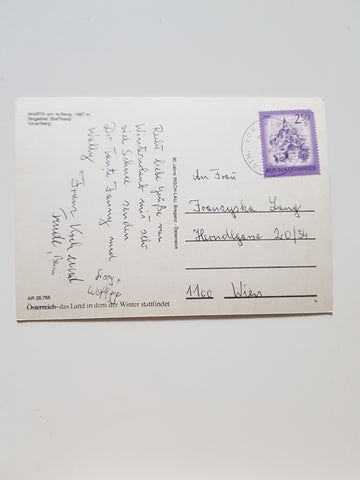 WARTH am Arlberg, 1497 m
Vorarlberg
Recht liebe Grüße vom
Winterurlaub mit sehr
viel Schnee senden
Dir Tante Fanny und
Willy
Franz
90 Jahre RISCH-LAU, Bregenz - Österreich
2.50
REPUBLIK ÖSTERREICH
An Frau
Franziska Lang
Herndlgasse 20/34
1100 Wien
AR 26.766
Österreich - das Land in dem der Winter stattfindet